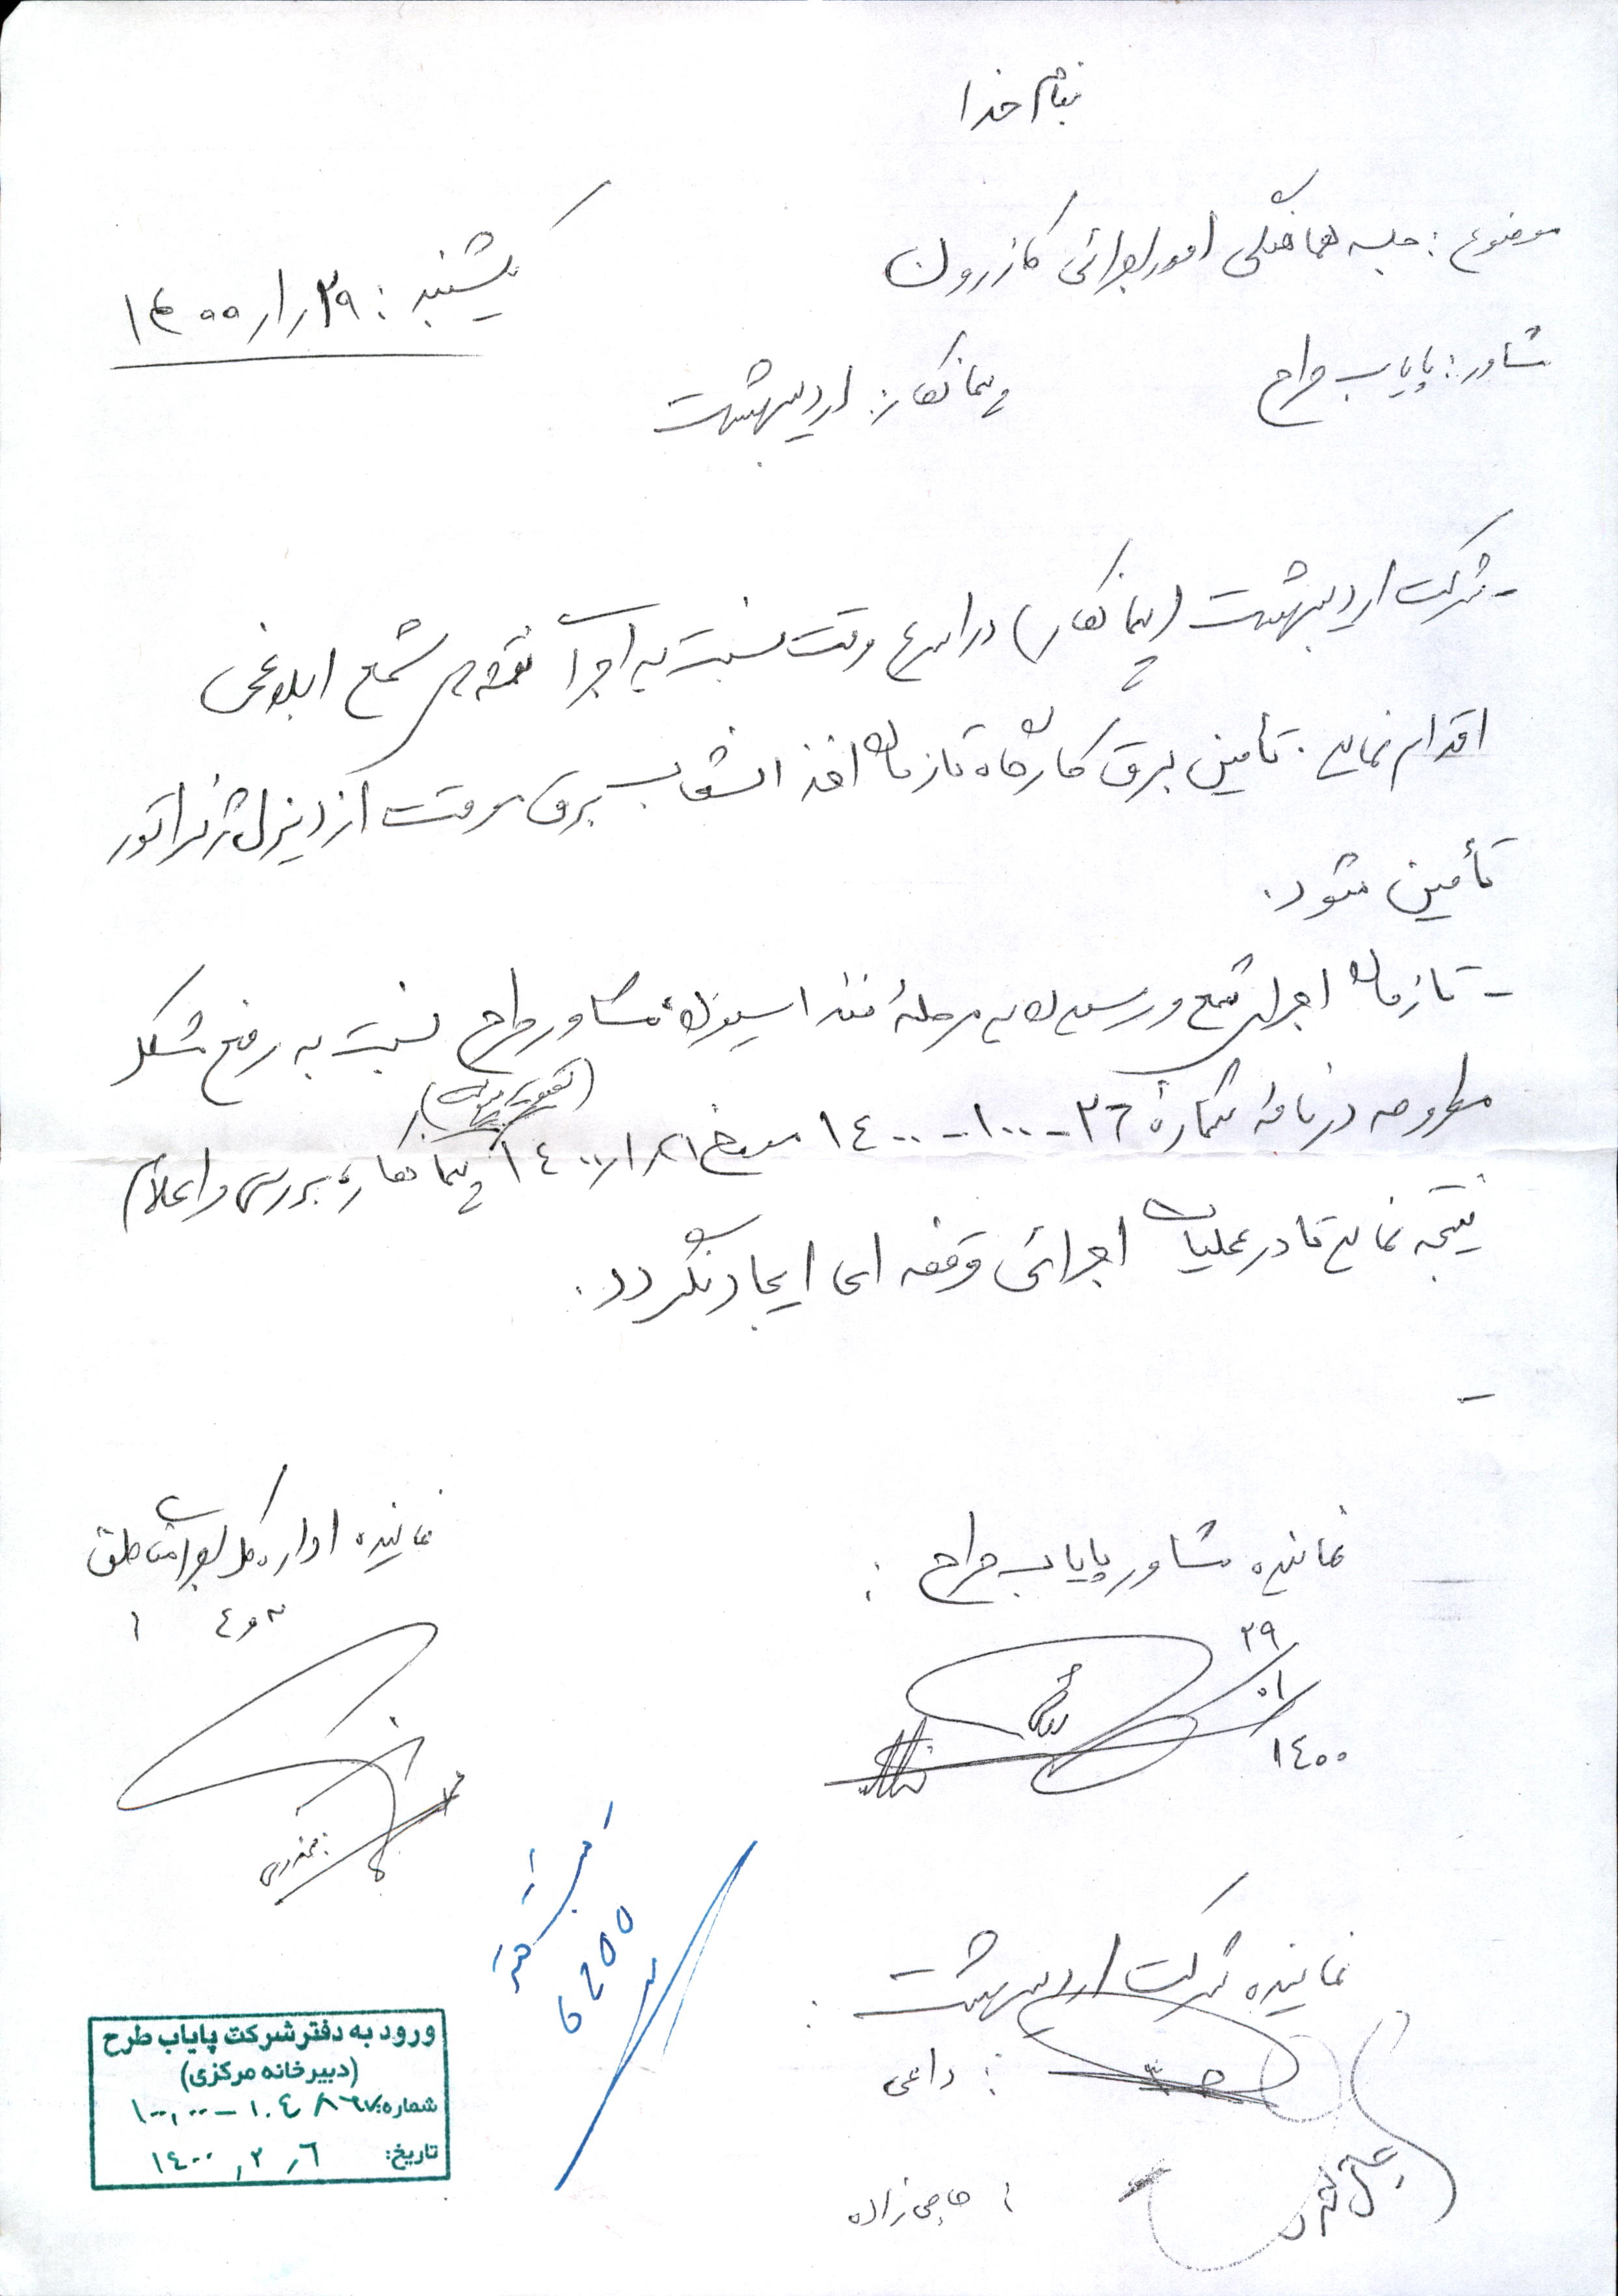 بنام خدا
موضوع: جلسه هماهنگی امور اجرائی کازرون
یکشنبه: ۲۹ر۱ر۱۴۰۰
مشاور: پایاب طرح
پیمانکار: اردیبهشت
- شرکت اردیبهشت (پیمانکار) در اسرع وقت نسبت به اجرا نقشه شمع ابلاغی
اقدام نماید. تامین برق کارگاه تا زمان اخذ انشعاب برق موقت از دیزل ژنراتور
تأمین شود.
- تا زمان اجرای شمع و رسیدن به مرحلهٔ فنداسیون، مشاور طرح نسبت به رفع مشکل
مطروحه در نامه شمارهٔ ۲۶-۱۰۰-۱۴۰۰ مورخ ۲۱ر۱ر۱۴۰۰ پیمانکار، بررسی و اعلام
نتیجه نماید تا در عملیات اجرائی وقفه ای ایجاد نگردد.
-
نماینده مشاور پایاب طرح:
نماینده اداره کل اجرا مناطق
۳ و ۴
۲۹
۰۱
۱۴۰۰
نماینده شرکت اردیبهشت:
: داعی
: حاجی زاده
ورود به دفتر شرکت پایاب طرح
(دبیرخانه مرکزی)
شماره: ۱۰۰٫۰۰-۱۰۴۸۶۷
تاریخ: ۱۴۰۰٫۲٫۶